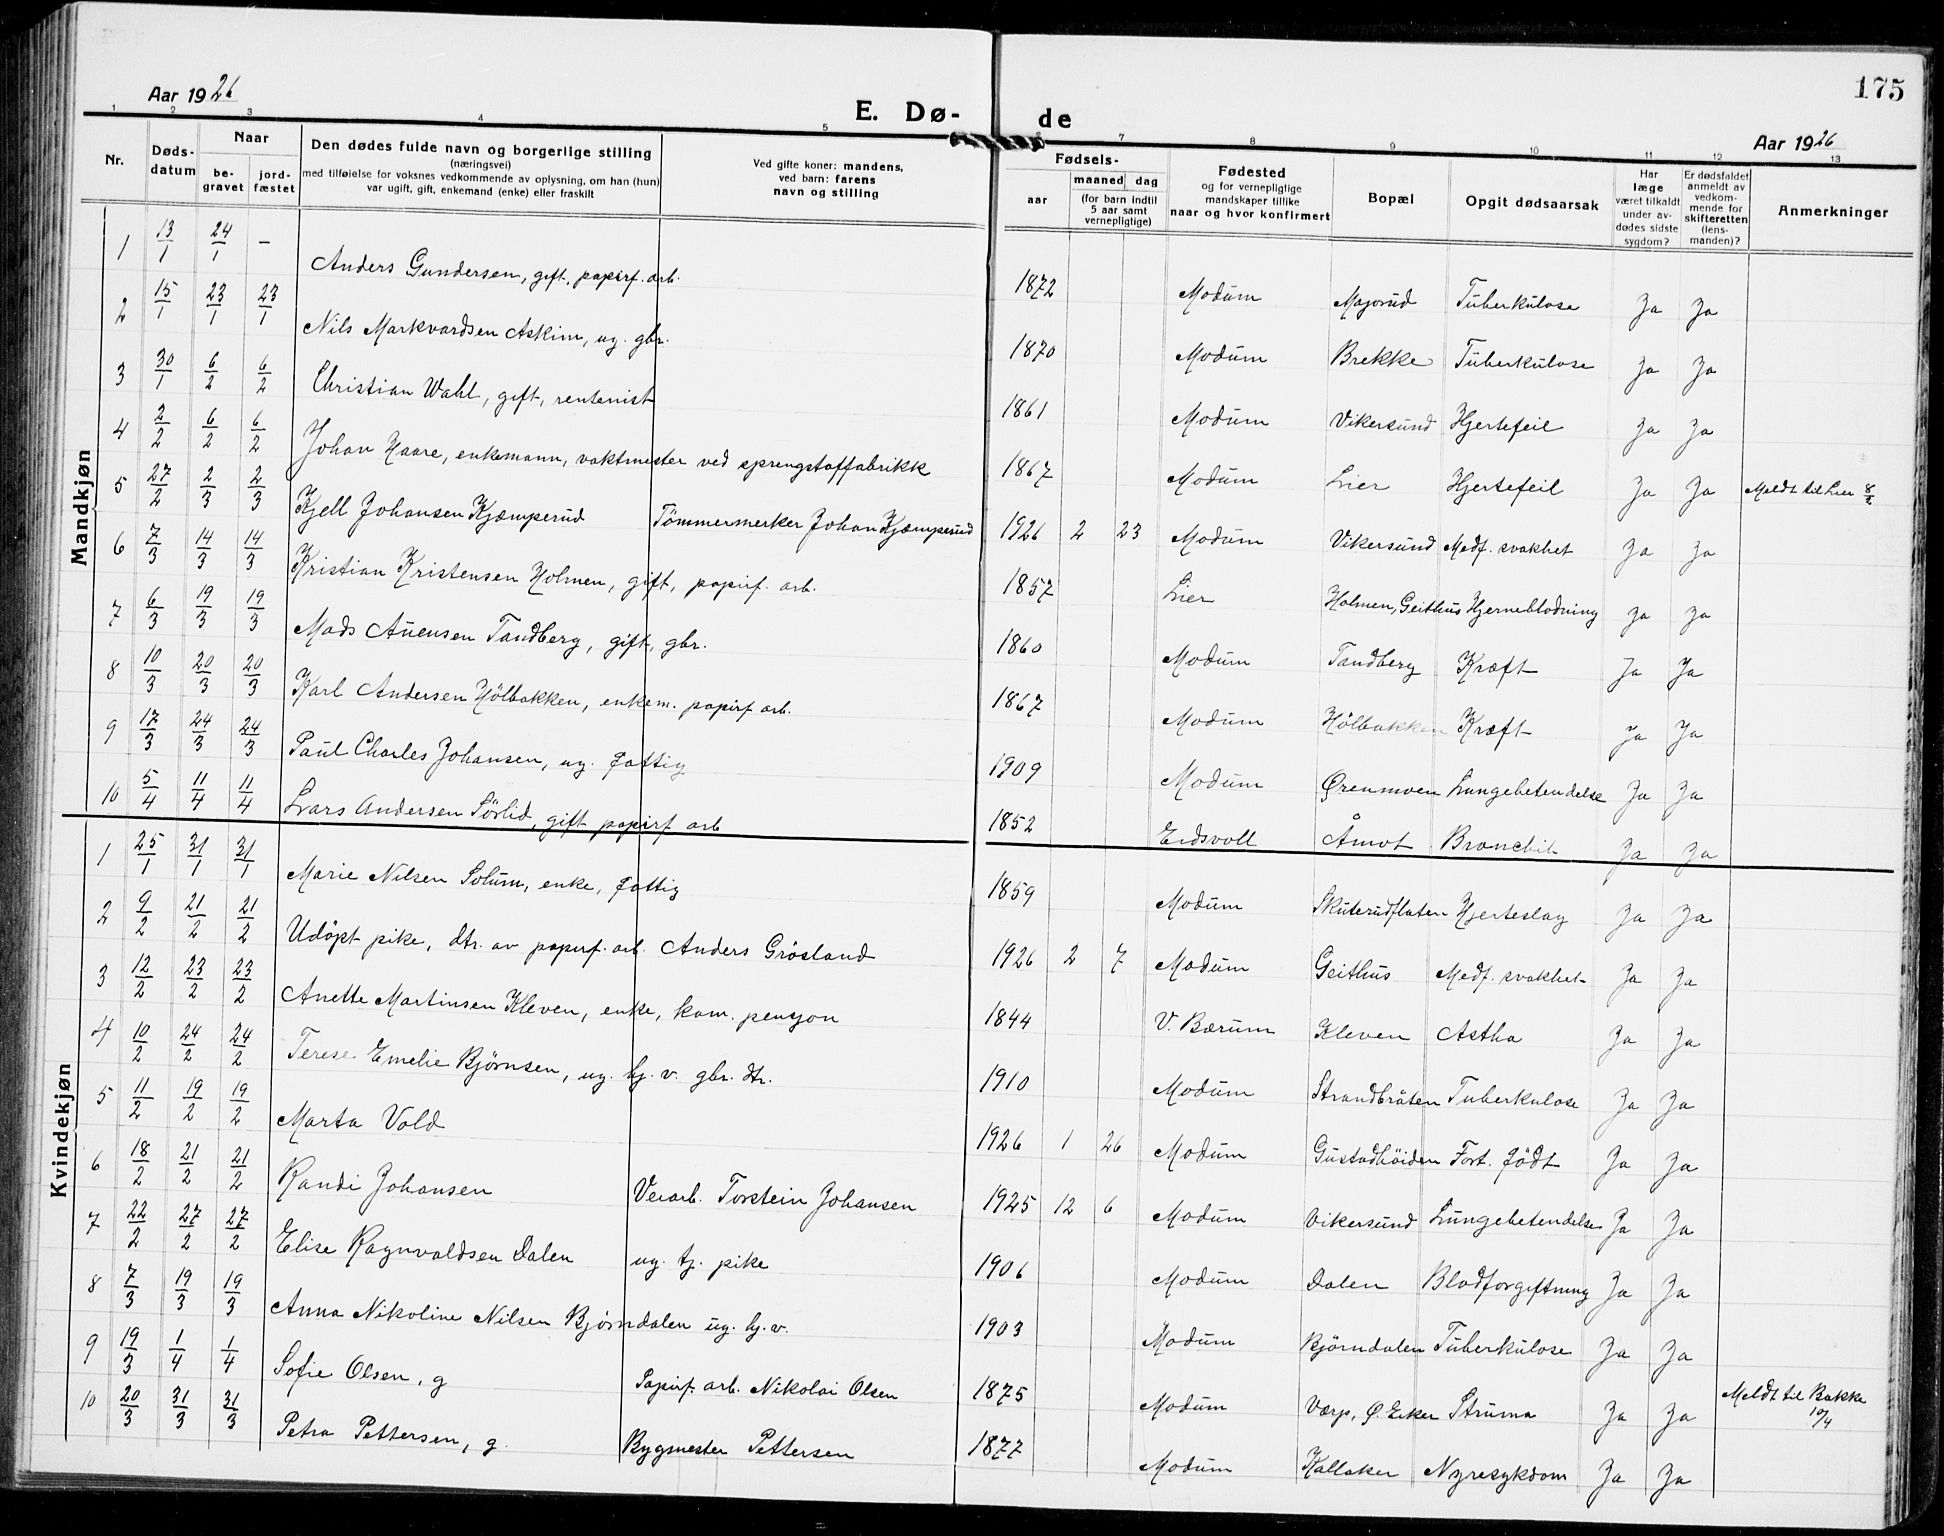 175
Aar 1926
E. Dø- de
Aar 1926
1 2 3 4 5 6 7 8 9 10 11 12 13
Nr.
Døds-
datum
Naar
be-
gravet
jord-
fæstet
Den dødes fulde navn og borgerlige stilling
(næringsvei)
med tilføielse for voksnes vedkommende av oplysning, om han (hun)
var ugift, gift, enkemand (enke) eller fraskilt
Ved gifte koner: mandens,
ved barn: farens
navn og stilling
Fødsels-
aar
maaned dag
(for barn indtil
5 aar samt
vernepligtige)
Fødested
og for vernepligtige
mandskaper tillike
naar og hvor konfirmert
Bopæl
Opgit dødsaarsak
Har
læge
været tilkaldt
under av-
dødes sidste
sygdom?
Er dødsfaldet
anmeldt av
vedkom-
mende for
skifteretten
(lens-
manden)?
Anmerkninger
Mandkjøn
1 13/1 24/1 – Anders Gundersen, gift, papirf. arb. 1872 Modum Majorud Tuberkulose Ja Ja
2 15/1 23/1 23/1 Nils Markvardsen Askim, ug. gbr. 1870 Modum Brekke Tuberkulose Ja Ja
3 30/1 6/2 6/2 Christian Wahl, gift, rentenist 1861 Modum Vikersund Hjertefeil Ja Ja
4 2/2 6/2 6/2 Johan Haare, enkemann, vaktmester ved sprengstoffabrikk 1867 Modum Lier Hjertefeil Ja Ja Meldt til Lier 8/2
5 27/2 2/3 2/3 Kjell Johansen Kjæmperud Tömmermerker Johan Kjæmperud 1926 2 23 Modum Vikersund Medf. svakhet Ja Ja
6 7/3 14/3 14/3 Kristian Kristensen Holmen, gift, papirf. arb. 1857 Lier Holmen, Geithus Hjerneblodning Ja Ja
7 6/3 19/3 19/3 Mads Auensen Tandberg, gift, gbr. 1860 Modum Tandberg Kræft Ja Ja
8 10/3 20/3 20/3 Karl Andersen Hölbakken, enkem. papirf arb. 1867 Modum Hölbakken Kræft Ja Ja
9 17/3 24/3 24/3 Paul Charles Johansen, ug. fattig 1909 Modum Ørenmoen Lungebetendelse Ja Ja
10 5/4 11/4 11/4 Lars Andersen Sörlid, gift papirf arb 1852 Eidsvoll Åmot Bronchit Ja Ja
Kvindekjøn
1 25/1 31/1 31/1 Marie Nilsen Solum, enke, fattig 1859 Modum Skuterudflaten Hjerteslag Ja Ja
2 9/2 21/2 21/2 Udöpt pike, dtr. av papirf. arb. Anders Grösland 1926 2 7 Modum Geithus Medf. svakhet Ja Ja
3 12/2 23/2 23/2 Anette Martinsen Kleven, enke, kom. pensjon 1844 V. Bærum Kleven Astha Ja Ja
4 10/2 24/2 24/2 Terese Emelie Bjørnsen, ug. hj. v. gbr. dtr. 1910 Modum Strandbråten Tuberkulose Ja Ja
5 11/2 19/2 19/2 Marta Vold 1926 1 26 Modum Gustadhöiden Fort. födt Ja Ja
6 18/2 21/2 21/2 Randi Johansen Verarb. Torstein Johansen 1925 12 6 Modum Vikersund Lungebetendelse Ja Ja
7 22/2 27/2 27/2 Elise Ragnvaldsen Dalen ug. tj. pike 1906 Modum Dalen Blodforgiftning Ja Ja
8 7/3 19/3 19/3 Anna Nikoline Nilsen Bjørndalen ug. hj. v. 1903 Modum Bjørndalen Tuberkulose Ja Ja
9 19/3 1/4 1/4 Sofie Olsen, g Papirf. arb. Nikolai Olsen 1875 Modum Værp, Ø. Eiker Struma Ja Ja Meldt til Bakke 10/4
10 20/3 31/3 31/3 Petra Pettersen, g. Bygmester Pettersen 1877 Modum Kallaker Nyresykdom Ja Ja